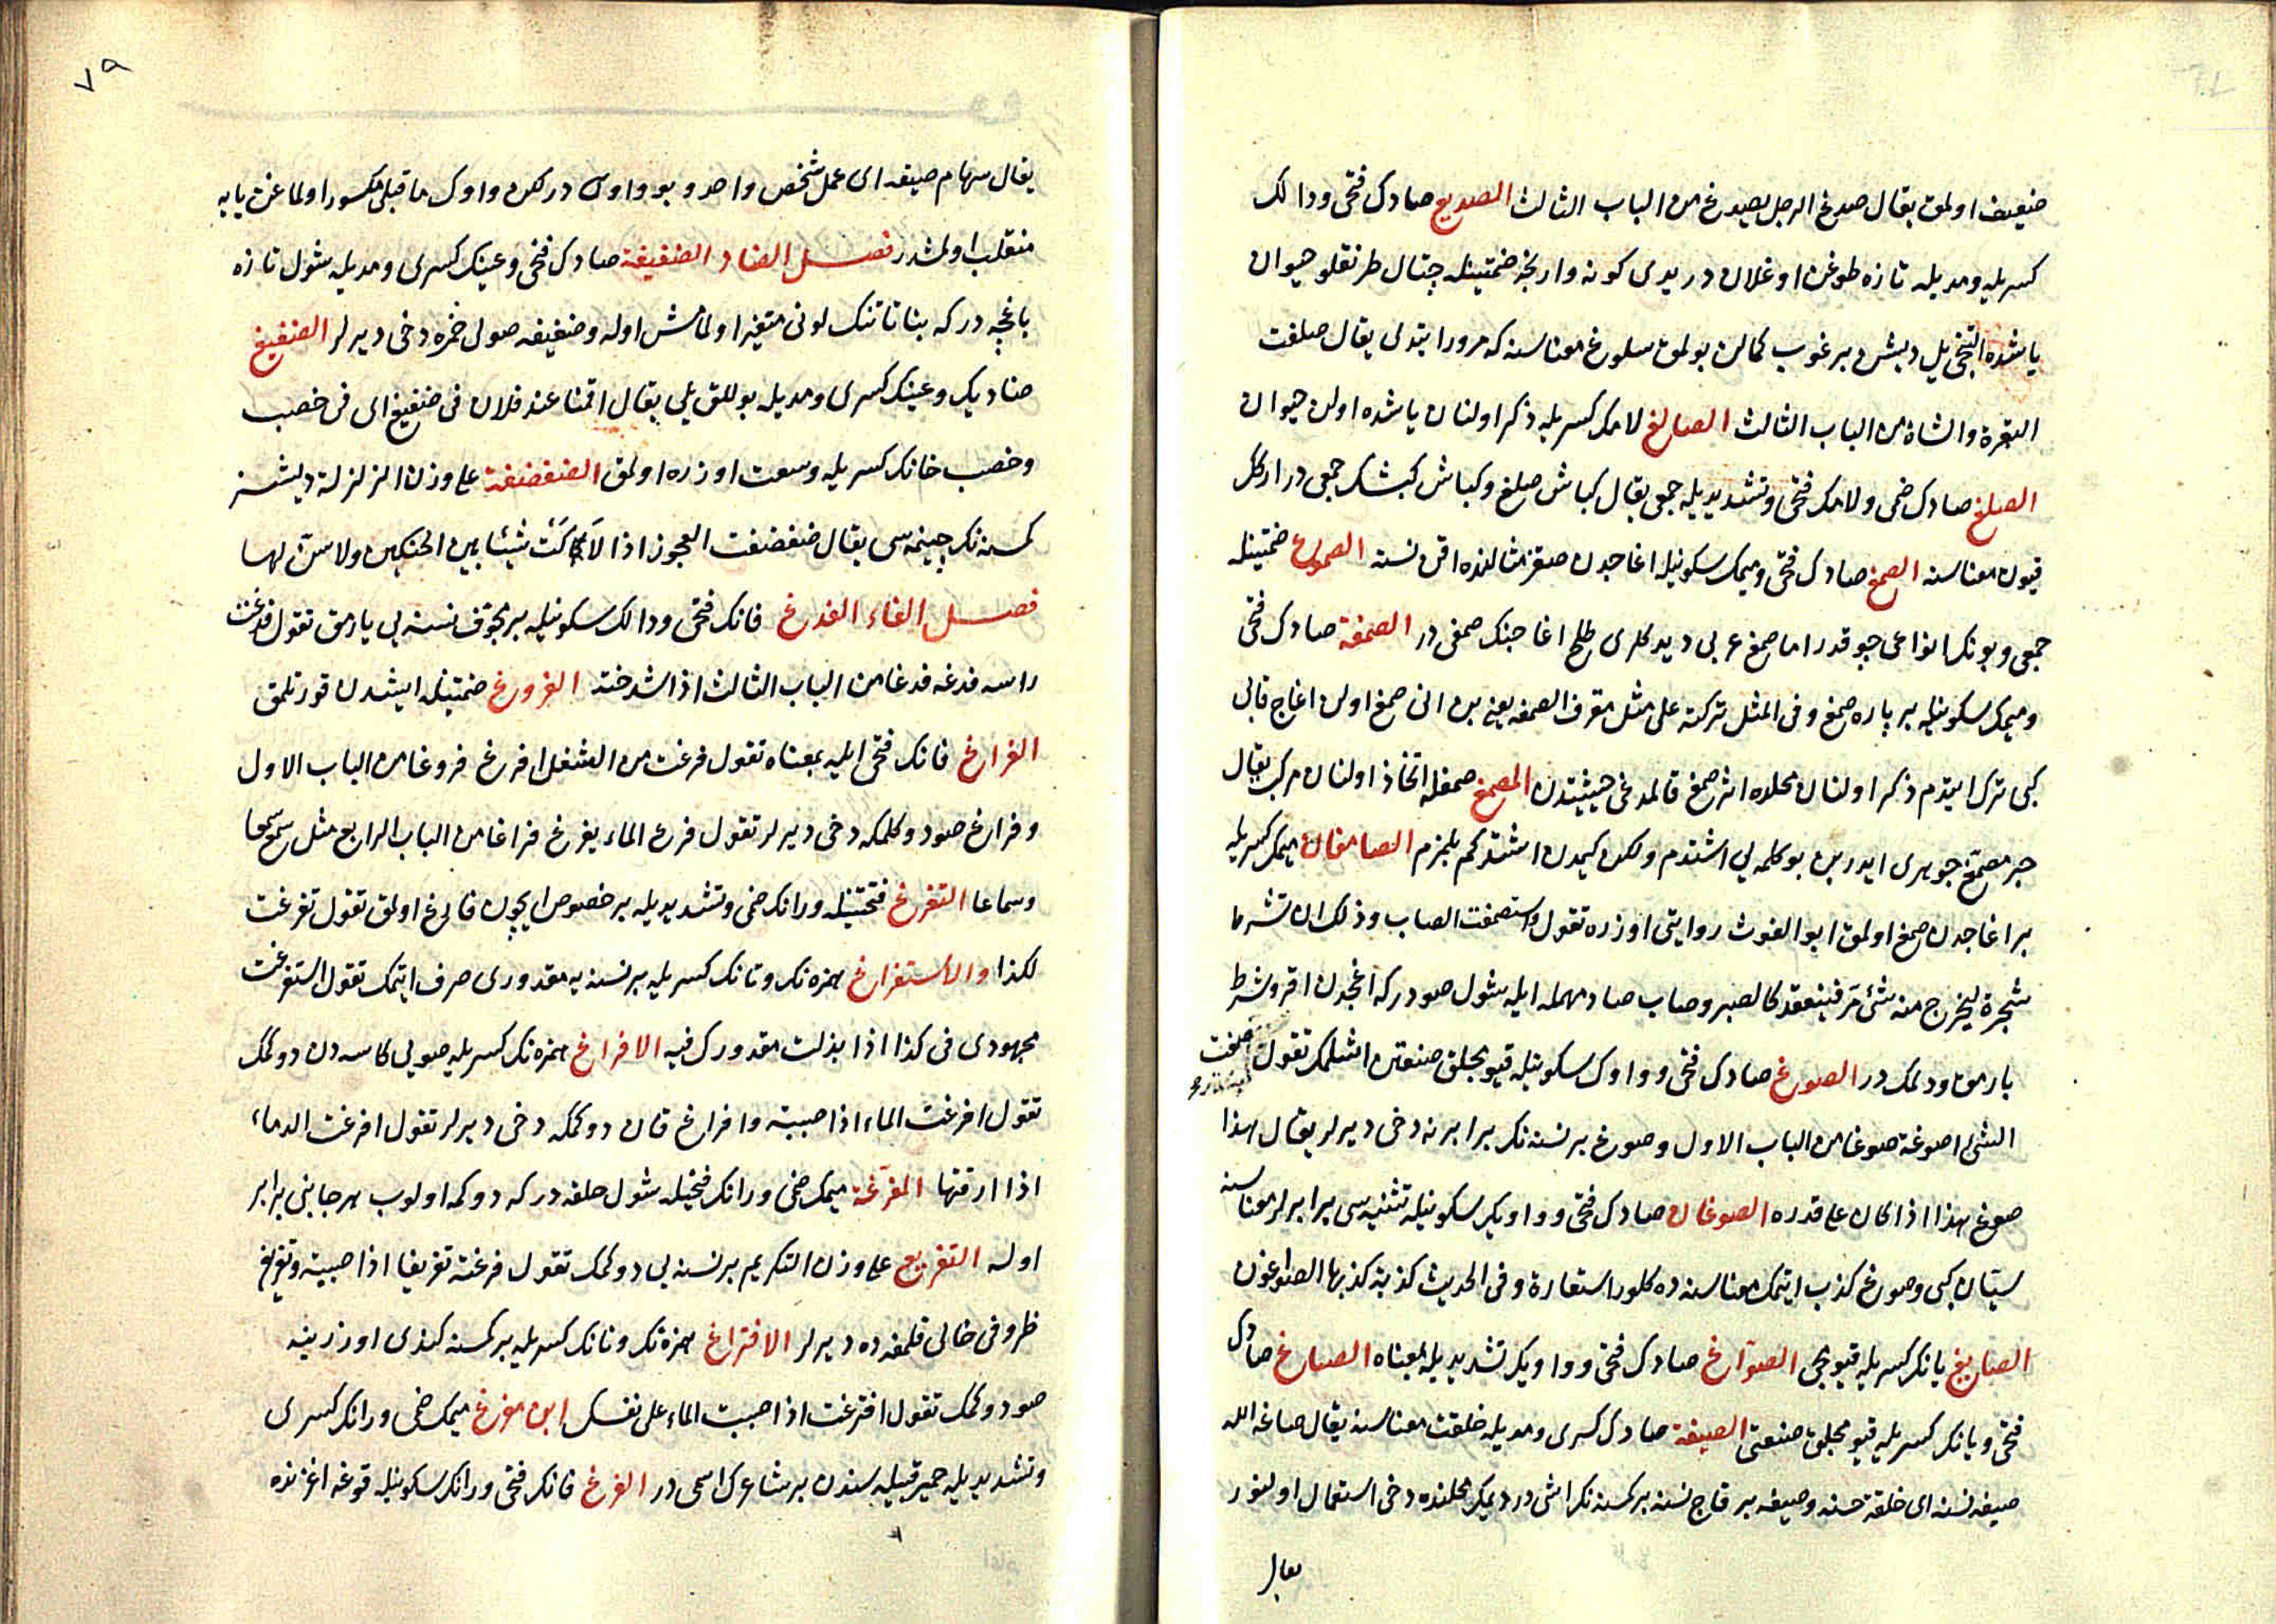 ضعیف اولمق یقال صدغ الرجل یصدغ من الباب الثالث الصدیغ صادک فتحی و دالک
کسریله و مدیله تازه طوغن اوغلان در یدی کونه وارنجه ضمتینله چتال طرنقلو حیوان
یاشده التنجی ییل دیشن براغوب کمالن بولمق سلوغ معناسنه که مرور ایتدی یقال صلغت
البقرة والشاة من الباب الثالث الصالغ لامک کسریله ذکر اولنان یاشده اولن حیوان
الصلغ صادک ضمی و لامک فتحی و تشدیدیله جمعی یقال کباش صلغ و کباش کبشک جمعی در ارکک
قیون معناسنه الصمغ صادک فتحی و میمک سکونیله اغاجدن صقز مثالنده اقن نسنه الصموغ ضمتینله
جمعی و بونک انواعی چوقدر اما صمغ عربی دیدکلری طلح اغاجنک صمغی در الصمغة صادک فتحی
و میمک سکونیله بر پاره صمغ و فی المثل ترکته علی مثل مقرف الصمغه یعنی بن انی صمغ اولن اغاج قابی
کبی ترک ایتدم ذکر اولنان محلده اثر صمغ قالمدغی حیثیتدن المصمغ صمغله اتخاذ اولنان مرکب یقال
حبر مصمغ جوهری ایدر بن بو کلمه یی اشتدم ولکن کیمدن اشتدکم بلمزم الصامغان میمک کسریله
بر اغاجدن صمغ اولمق ابو الغوث روایتی اوزره تقول استصمغت الصاب و ذلک ان تشرط
شجرة لیخرج منه شئ مر فینعقد کالصبر و صاب صاد مهمله ایله شول صودر که اغجدن اقر و شرط
یارمق ودلمک در الصوغ صادک فتحی و واوک سکونیله قیومجلق صنعتن اشلمک تقول صغت
الشئ اصوغه صوغا من الباب الاول و صوغ بر نسنه نک برابرنه دخی دیرلر یقال هذا
صوغ هذا اذا کان علی قدره الصوغان صادک فتحی و واویک سکونیله تثنیه سی برابرلر معناسنه
سیّان کبی و صوغ کذب ایتمک معناسنده کلور استعارة و فی الحدیث کذبة کذبها الصواغون
الصایغ یانک کسریله قیومجی الصوّاغ صادک فتحی و واویک تشدیدیله بمعناه الصیاغ صادک
فتحی و یانک کسریله قیومجلق صنعتی الصیغة صادک کسری و مدیله خلقت معناسنه یقال صاغه الله
صیغه حسنه ای خلقة حسنه و صیغه بر قاچ نسنه بر کمسنه نک اشی در دیمک محلنده دخی استعمال اولنور
یقال
٧٩
یقال سهام صیغه ای عمل شخص واحد و بو واوی در لکن واوک ما قبلی مکسور اولماغن یایه
منقلب اولمشدر فصل الضاد الضغیغة ضادک فتحی و غینک کسری و مدیله شول تازه
باغچه در که نباتاتنک لونی متغیر اولمامش اوله و ضغیغه صولی خمره دخی دیرلر الضغیغ
ضادیک و غینک کسری و مدیله بوللق ییلی یقال اقمنا عند فلان فی ضغیغ ای فی خصب
و خصب خانک کسریله وسعت اوزره اولمق الضغضغة علی وزن الزلزلة دیشسز
کمسنه نک چینمه سی یقال ضغضغت العجوز اذا لاکت شیئا بین الحنکین ولا سنّ لها
فصل الفاء الفدغ فانک فتحی و دالک سکونیله بر مجوّف نسنه یی یارمق تقول فدغت
راسه فدغه فدغا من الباب الثالث اذا شدخته الفروغ ضمتینله ایشدن قورتلمق
الفراغ فانک فتحی ایله بمعناه تقول فرغت من الشغل افرغ فروغا من الباب الاول
و فراغ صو دوکلمکه دخی دیرلر تقول فرغ الماء یفرغ فراغا من الباب الرابع مثل سمع سمعا
و سماعا التفرغ فتحتینله و رانک ضمی و تشدیدیله بر خصوص ایچون فارغ اولمق تقول تفرغت
لکذا والاستفراغ همزه نک و تانک کسریله بر نسنه یه مقدوری صرف ایتمک تقول استفرغت
مجهودی فی کذا اذا بذلت مقدورک فیه الافراغ همزه نک کسریله صویی کاسه دن دوکمک
تقول افرغت الماء اذا صببته و افراغ قان دوکمکه دخی دیرلر تقول افرغت الدماء
اذا ارقتها المفرغة میمک ضمی و رانک فتحیله شول حلقه در که دوکمه اولوب هر جانبی برابر
اوله التفریغ علی وزن التکریم بر نسنه یی دوکمک تقول فرغته تفریغا اذا صببته و تفریغ
ظروفی خالی قلمغه ده دیرلر الافتراغ همزه نک و تانک کسریله بر کمسنه کندی اوزرینه
صو دوکمک تقول افترغت اذا صببت الماء علی نفسک ابن مفرغ میمک ضمی و رانک کسری
و تشدیدیله حمیر قبیله سندن بر شاعرک اسمی در الفرغ فانک فتحی و رانک سکونیله قوغه اغزنده